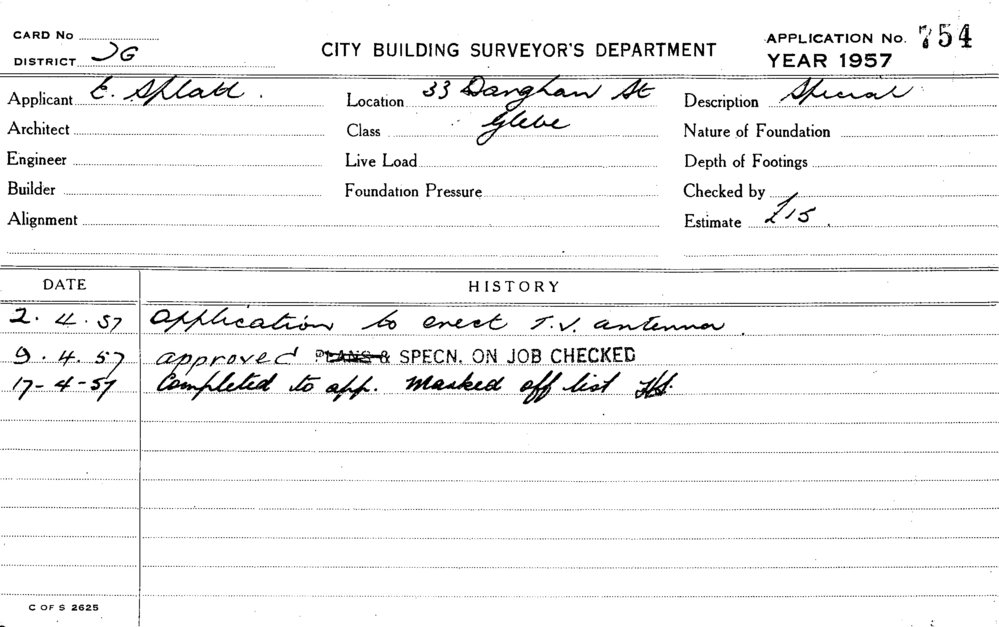 CARD No
DISTRICT JG
CITY BUILDING SURVEYOR'S DEPARTMENT
APPLICATION No. 754
YEAR 1957
Applicant E. Splatt.
Location 33 Darghan St
Description Special
Architect
Class Glebe
Nature of Foundation
Engineer
Live Load
Depth of Footings
Builder
Foundation Pressure
Checked by
Alignment
Estimate £15.
DATE HISTORY
2.4.57 Application to erect T.V. antenna.
9.4.57 approved PLANS & SPECN. ON JOB CHECKED
17-4-57 Completed to app. Marked off list
C OF S 2625